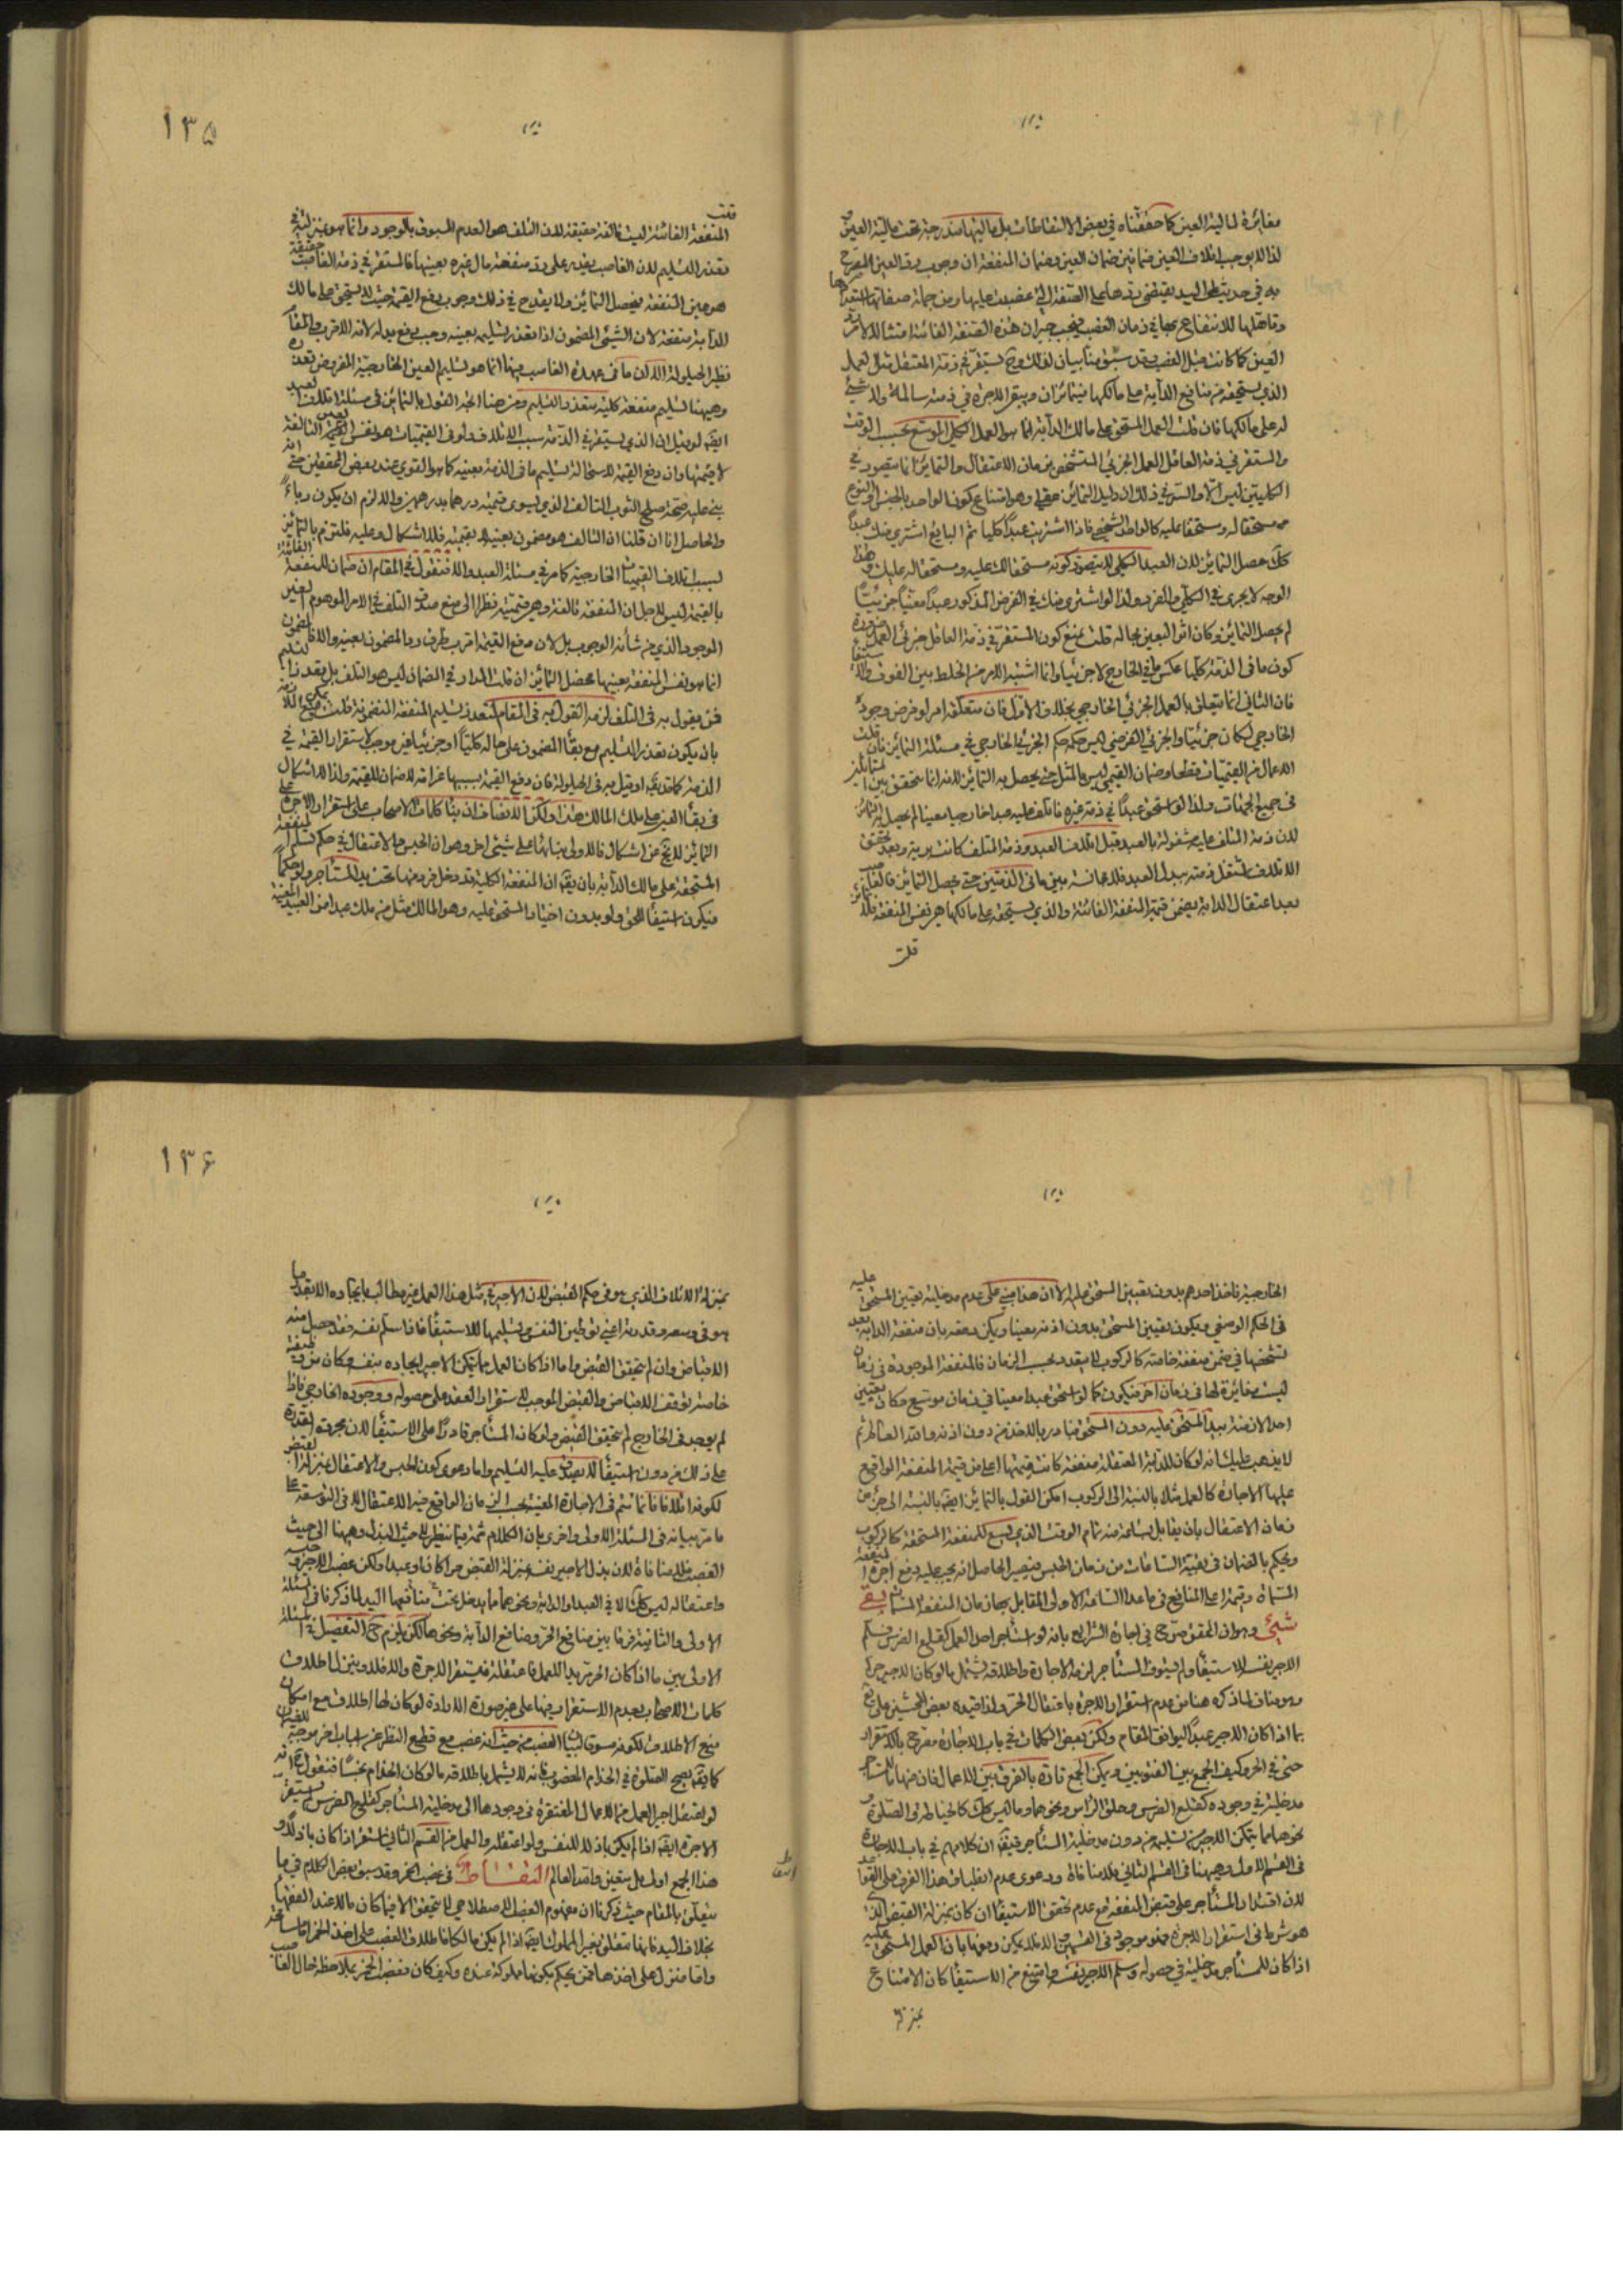 مغائرة لمالية العين كما حققناه في بعض الالتقاطات بل ماليتها مندرجة تحت مالية العين
لذا لا يوجب اتلاف العين ضمانين ضمان العين وضمان المنفعة ان وجوب رد العين المصرح
به في حديث على اليد يقتضى ردها على الصفة التي غصبت عليها ومن جملة صفاتها
وتأهلها للانتفاع بها في زمان الغصب فيجب جبران هذه الصفة الفائتة
العين كما كانت قبل الغصب وقد سبق منا بيان لذلك وح يستقر في ذمة المعتقل مثل العمل
الذي يستحقه من منافع الدابة على مالكها فيتهاتران ويبقى الاجرة في ذمته سالمة ولا شيء
له على مالكها فان قلت العمل المستحق على مالك الدابة انما هو العمل الكلي الموسع بحسب الوقت
والمستقر في ذمة العامل العمل الجزئي المتشخص بزمان الاعتقال والتهاتر انما يتصور في
الكليتين ليس الا والسر في ذلك ان دليل التهاتر عقلي وهو امتناع كون الواحد بالجنس او النوع
مستحقا له ومستحقا عليه كالواحد الشخصي فاذا اشتريت عبدا كليا ثم البايع اشترى منك عبدا
كليا حصل التهاتر لان العبد الكلي لا يتصور كونه مستحقا لك عليه ومستحقا له عليك وهذا
الوجه لا يجرى في الكلي والفرد ولذا لو اشترى منك في الفرض المذكور عبدا معينا جزئيا
لم يحصل التهاتر وكان اثر البيعين بحاله قلت نمنع كون المستقر في ذمة العامل جزئى العمل ضرورة
كون ما في الذمة كليا عكس ما في الخارج لا جزئيا وانما اشتبه الامر من الخلط بين الفوت والاستيفاء
فان الثاني انما يتعلق بالعمل الجزئي الخارجي بخلاف الاول فان متعلقه امر لو فرض وجوده
الخارجي لكان جزئيا والجزئي الفرضي ليس حكمه حكم الجزئي الخارجي في مسئلة التهاتر فان قلت
الاعمال من القيميات قطعا وضمان القيمي ليس بالمثل حتى يحصل به التهاتر لانه انما يتحقق بين المتماثلين
في جميع الجهات ولذا لو استحق عبدا في ذمة غيره فاتلف عليه عبدا خارجيا معينا لم يحصل التهاتر
لان ذمة المتلف عليه مشغولة بالعبد قبل اتلاف العبد وذمة المتلف كانت بريئة وبعد تحقق
الاتلاف تشتغل ذمته ببدل العبد فلا مجانسة بين ما في الذمتين حتى يحصل التهاتر فالغاصب
بعد اعتقال الدابة يضمن قيمة المنفعة الفائتة والذي يستحقه على مالكها هو نفس المنفعة فلا تهاتر
قلت
١٣٥
قلت
المنفعة الفائتة ليست تالفة حقيقة لان التلف هو العدم المسبوق بالوجود وانما هو بمنزلته في
تعذر التسليم لان الغاصب يغرم على رد منفعة مال غيره بعينها فالمستقر في ذمة الغاصب حقيقة
هو عين المنفعة فيحصل التهاتر ولا يقدح في ذلك وجوب دفع القيمة حيث لا يستحق على مالك
الدابة منفعة لان الشيء المضمون اذا تعذر تسليمه بعينه وجب دفع بدله لانه الاقرب والمقام
نظير الحيلولة الا ان ما في عهدة الغاصب فيها انما هو تسليم العين الخارجية المفروض تعذره
وهيهنا تسليم منفعة كلية متعذر التسليم ومن هنا اتجه القول بالتهاتر في مسئلة اتلاف العبد
ايضا لو قيل ان الذي يستقر في الذمة بسبب الاتلاف ولو في القيميات هو نفس العين التالفة
لا قيمتها وان دفع القيمة لاستحالة تسليم ما في الذمة بعينه كما هو القوي عند بعض المحققين حتى انه
بنى عليه صحة صلح الثوب التالف الذي يسوى قيمته درهما بدرهمين والا لزم ان يكون رباء
والحاصل انا ان قلنا ان التالف هو مضمون بعينه لا بقيمته فلا اشكال وعليه فلتزم بالتهاتر
بسبب اتلاف القيميات الخارجية كما مر في مسئلة العبد والا فنقول في المقام ان ضمان المنفعة الفائتة
بالقيمة ليس لاجل ان المنفعة تالفة وهي قيمية نظرا الى منع صدق التلف في الامر الموهوم الغير
الموجود الذي من شأنه الوجود بل لان دفع القيمة اقرب طرق رد المضمون بعينه والا فالمضمون
انما هو نفس المنفعة بعينها فحصل التهاتر ان قلت المدار في الضمان ليس هو التلف بل تعذر التسليم
فمن يقول به في التلف لزمه القول به في المقام لتعذر تسليم المنفعة المضمونة قلت يمكن منع الملازمة
بان يكون تعذر التسليم مع بقاء المضمون على حاله كليا او جزئيا غير موجب لاستقرار القيمة في
الذمة كما تدبر او قيل به في الحيلولة فان دفع القيمة بسببها غرامة لا ضمان للقيمة ولذا لا اشكال
في بقاء العين على ملك المالك هذا ولكن الانصاف ان بناء كلمات الاصحاب على استقرار الاجرة على
التهاتر لا يخ عن اشكال فالاولى بنائها على شيء اخر وهو ان الحبس والاعتقال في حكم تسلم المنفعة
المستحقة على مالك الدابة بان يقال ان المنفعة الكلية قد دخل فرد منها تحت يد المستأجر ولو حكما
فيكون استيفاء للحق ولو بدون اختيار المستحق عليه وهو المالك مثل من ملك عبدا من العبيد المعينة
الخارجية فاخذ احدهم بدون تعيين المستحق عليه الا ان هذا مبني على عدم مدخلية تعيين المستحق عليه
في الحكم الوضعي ويكون تعيين المستحق بدون اذنه معينا ويمكن دفعه بان منفعة الدابة بعد
تشخصها في ضمن منفعة خاصة كالركوب لا يتعدد بحسب الزمان فالمنفعة الموجودة في زمان
ليست مغائرة لها في زمان اخر فيكون كما لو استحق عبدا معينا في زمان موسع فكان تعيين
احد الازمنة بيد المستحق عليه دون المستحق فبادر بالاخذ من دون اذنه والله العالم ثم
لا يذهب عليك انه لو كان للدابة المعتقلة منفعة كانت قيمتها اعلى من قيمة المنفعة الواقع
عليها الاجارة كالعمل مثلا بالنسبة الى الركوب امكن القول بالتهاتر ايضا بالنسبة الى جزء من
زمان الاعتقال بان يقابل بساعة منه تمام الوقت الذي يسع للمنفعة المستحقة كالركوب
ويحكم بالضمان في بقية الساعات من زمان الحبس فيصير الحاصل انه يجب عليه دفع اجرة المنفعة
المسماة وقيمة اعلى المنافع في ما عدا الساعة الاولى المقابل بها زمان المنفعة المسماة بقى
شيء وهو ان المحقق صرح في اجارة الشرايع بانه لو استأجر لاجل العمل كقلع الضرس فسلم
الاجير نفسه للاستيفاء ولم يستوف المستأجر لزمه الاجارة واطلاقه يشمل ما لو كان الاجير حرا
وهو مناف لما ذكره هنا من عدم استقرار الاجرة باعتقال الحر ولذا قيده بعض المحشين على يع
بما اذا كان الاجير عبدا ليوافق المقام ولكن بعض الكلمات في باب الاجارة مصرح بالاستقرار
حتى في الحر وكيف الجمع بين الفتويين ويمكن الجمع تارة بالفرق بين الاعمال فان منها ما للمستأجر
مدخلية في وجوده كقلع الضرس وحلق الرأس ونحوهما وما ليس كك كالخياطة والصلوة و
نحوهما مما يتمكن الاجير من تسليمه من دون مدخلية المستأجر فيقال ان كلامهم في باب الاجارة
في القسم الاول وهيهنا في القسم الثاني فلا منافاة ودعوى عدم انطباق هذا الفرق على القواعد
لان اقتدار المستأجر على قبض المنفعة مع عدم تحقق الاستيفاء ان كان بمنزلة القبض الذي
هو شرط في استقرار الاجرة فهو موجود في القسمين والا فلا يمكن دفعها بان العمل المستحق عليه
اذا كان للمستأجر مدخلية في حصوله وسلم الاجير نفسه وامتنع من الاستيفاء كان الامتناع
بمنزلة
١٣٦
بمنزلة الاتلاف الذي هو في حكم القبض لان الاجير في مثل هذا العمل غير مطالب بايجاده الا بقدر ما
هو في وسعه وقدرته اعني توطين النفس وتسليمها للاستيفاء فاذا سلم نفسه فقد حصل منه
الاقباض وان لم يتحقق القبض واما اذا كان العمل مما يتمكن الاجير ايجاده بنفسه وكان من وظيفته
خاصة توقف الاقباض والقبض الموجب لاستقرار العقد على حصوله ووجوده الخارجي فاذا
لم يوجد في الخارج لم يتحقق القبض ولو كان المستأجر قادرا على الاستيفاء لان مجرد القدرة
على ذلك من دون استيفاء لا يصدق عليه التسليم واما دعوى كون الحبس والاعتقال بمنزلة القبض
لكونه اتلافا فانما تتم في الاجارة المعينة بحسب الزمان الواقع فيه الاعتقال لا في التوسعة على
ما مر بيانه في المسئلة الاولى واخرى بان الكلام ثمة فيما ينظر الى حيث البذل وهيهنا الى حيث
الغصب فلا منافاة لان بذل الاجير نفسه بمنزلة القبض حرا كان او عبدا ولكن غصب الاجير وحبسه
واعتقاله ليس كك الا في العبد او الدابة ونحوهما مما يدخل تحت منافعها اليد لما ذكرنا في المسئلة
الاولى والثانية فرقا بين منافع الحر ومنافع الدابة ونحوها لكن يلزم ح التفصيل في المسئلة
الاولى بين ما اذا كان الحر مريدا للعمل فاعتقله فيستقر الاجرة والا فلا وينزل اطلاق
كلمات الاصحاب بعدم الاستقرار فيها على غير صورة الارادة لو كان لها اطلاق مع امكان
منع الاطلاق لكونه مسوقا لبيان الغصب من حيث انه غصب مع قطع النظر عن اسباب اخر موجبة للضمان
كما يقال يصح الصلوة في الخاتم المغصوب فانه لا يشمل باطلاقه ما لو كان الخاتم نجسا فنقول ح انه
لو اعتقل اجير العمل من الاعمال المفتقرة في وجودها الى مدخلية المستأجر كقلع الضرس استقر
الاجرة ايضا اذا لم يكن باذلا للنفس ولو اعتقله والعمل من القسم الثاني استقر اذا كان باذلا و
هذا الجمع اولى بل متعين والله العالم التقاط في غصب الخمر وقد سبق بعض الكلام في ما
يتعلق بالمقام حيث ذكرنا ان مفهوم الغصب الاصطلاحي لا يتحقق الا فيما كان مالا عند الفقهاء
بخلاف اليد فانها تتعلق بغير المملوك ايضا اذا لم يكن مالكا فاطلاق الغصب على اخذ الخمر اما مسامحة
واما منزل على اخذها ممن يحكم بكونها مملوكة عنده وكيف كان فغصب الخمر بملاحظة حال الغاصب